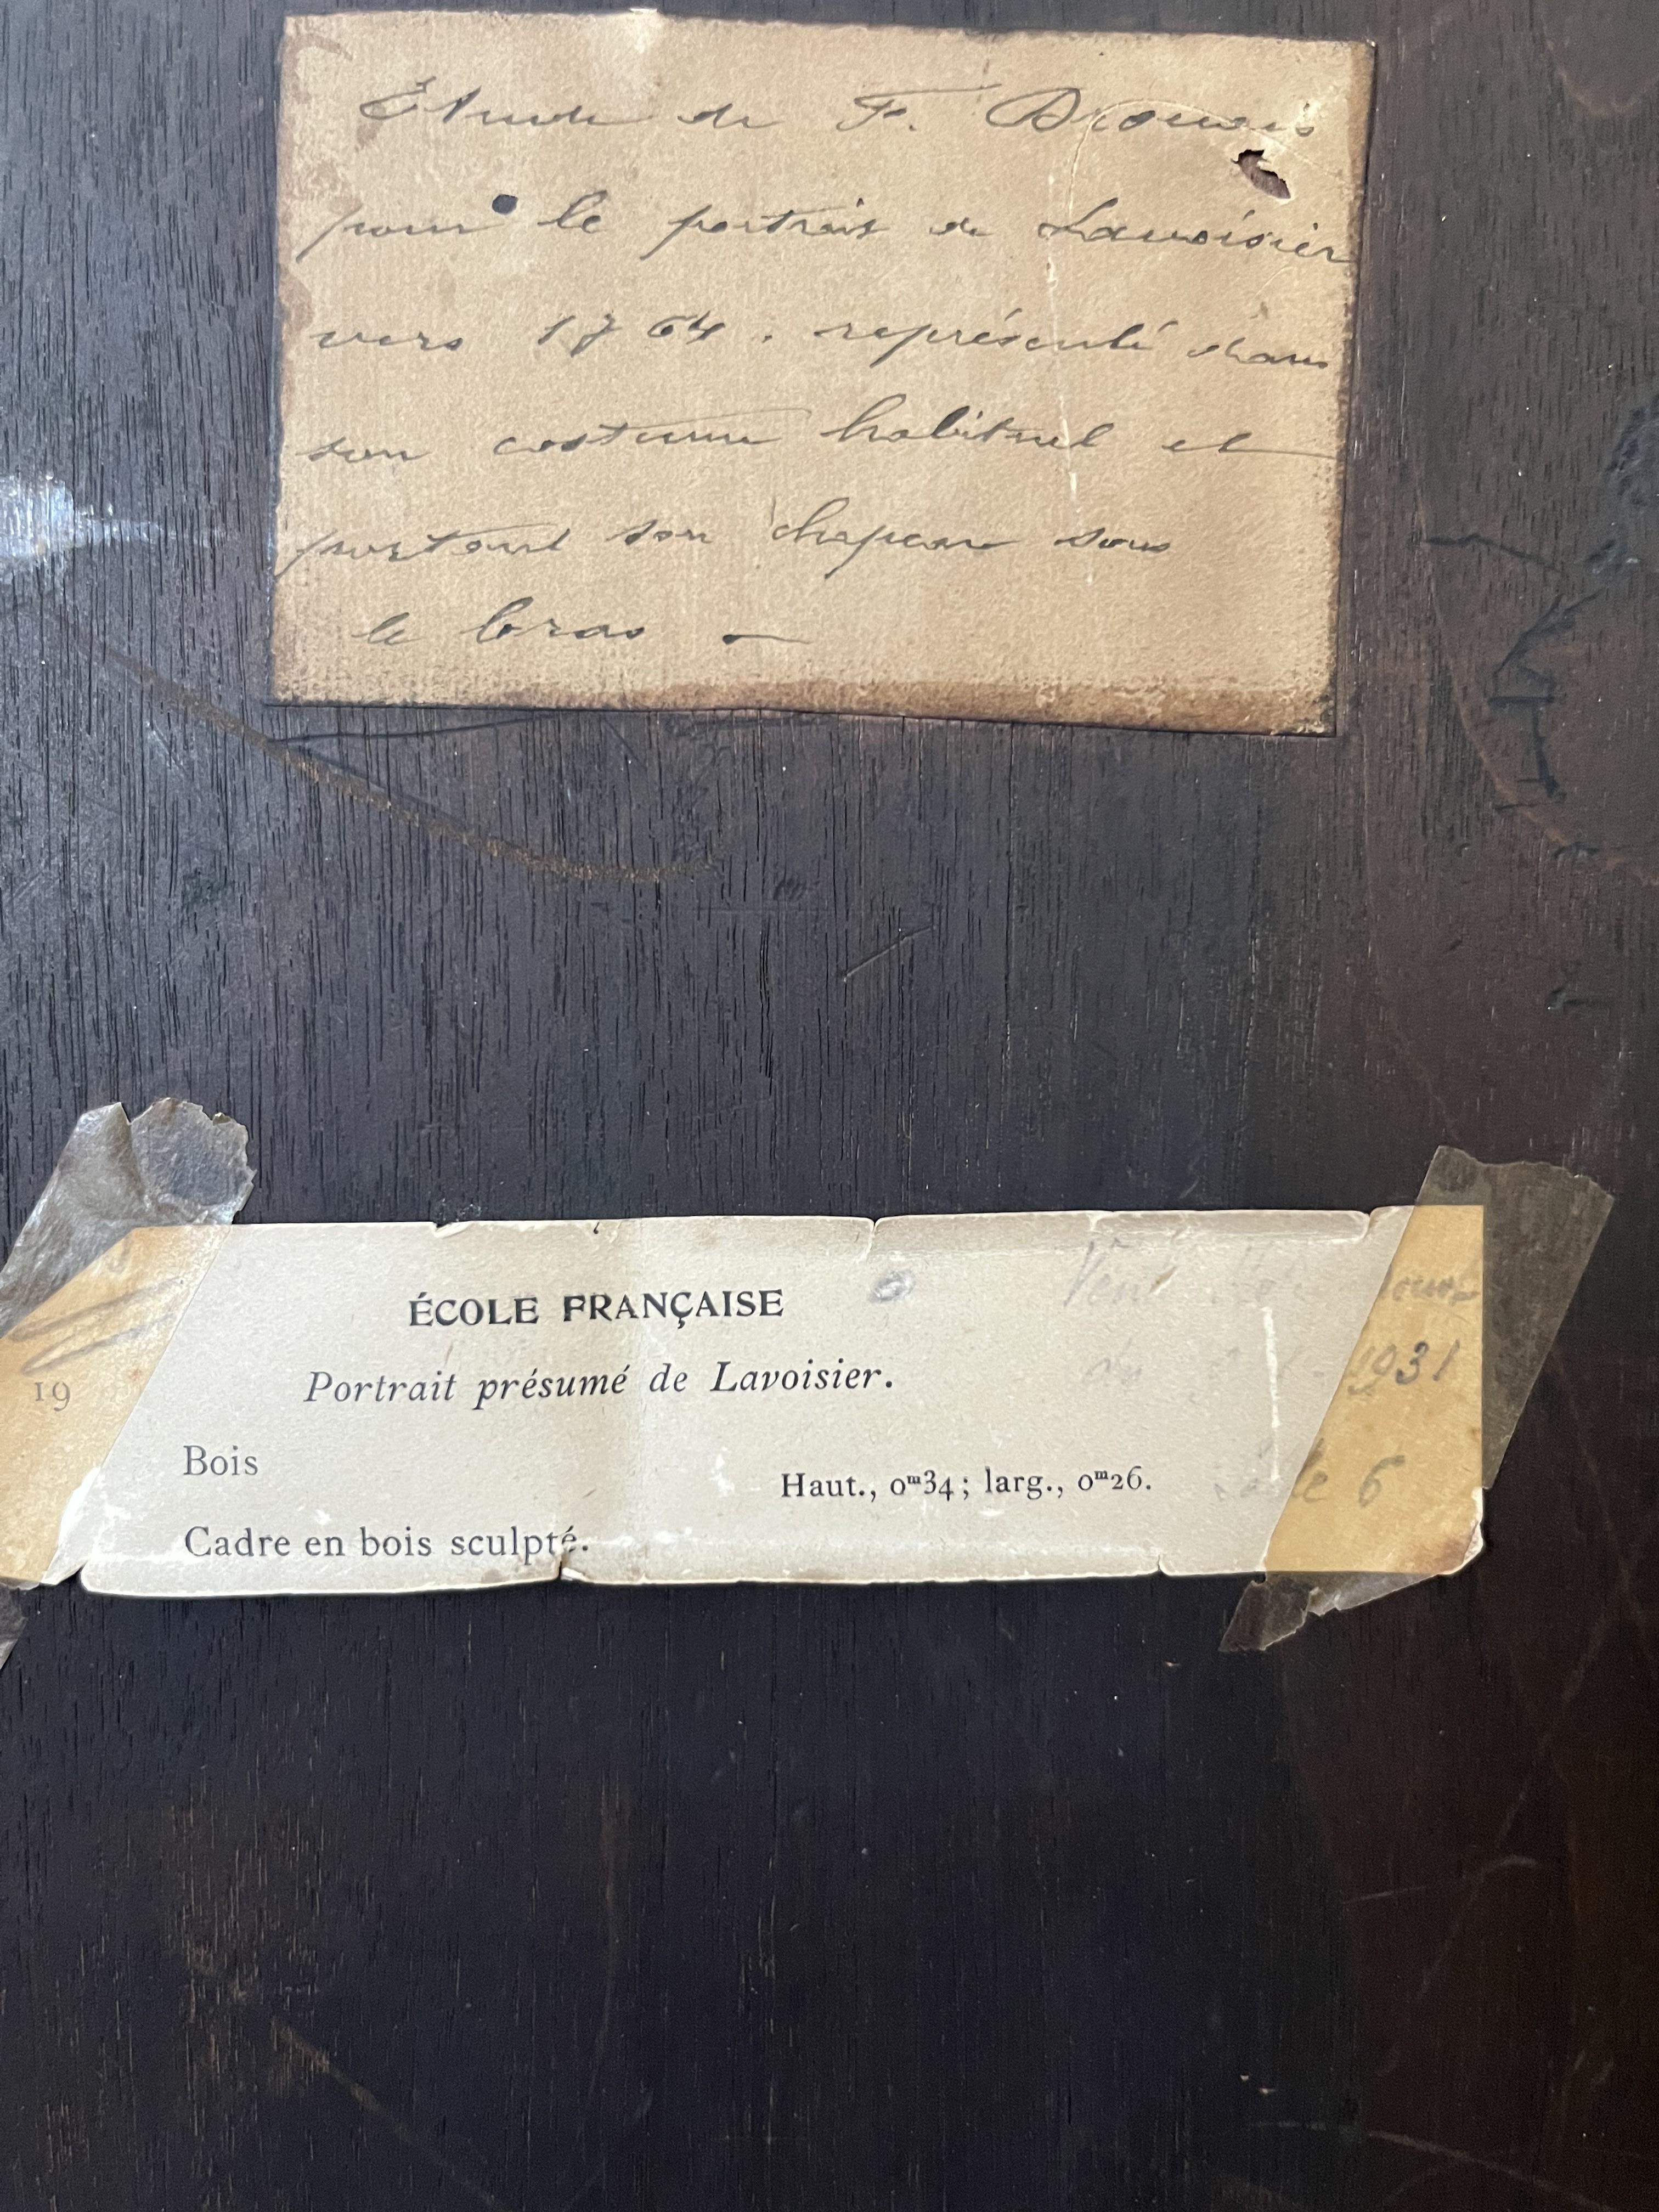 Étude de F. Drouais
pour le portrait de Lavoisier
vers 1764. représenté dans
son costume habituel et
portant son chapeau sous
le bras —
ÉCOLE FRANÇAISE
19
Portrait présumé de Lavoisier.
1931
Bois
Haut., 0ᵐ34; larg., 0ᵐ26.
6
Cadre en bois sculpté.